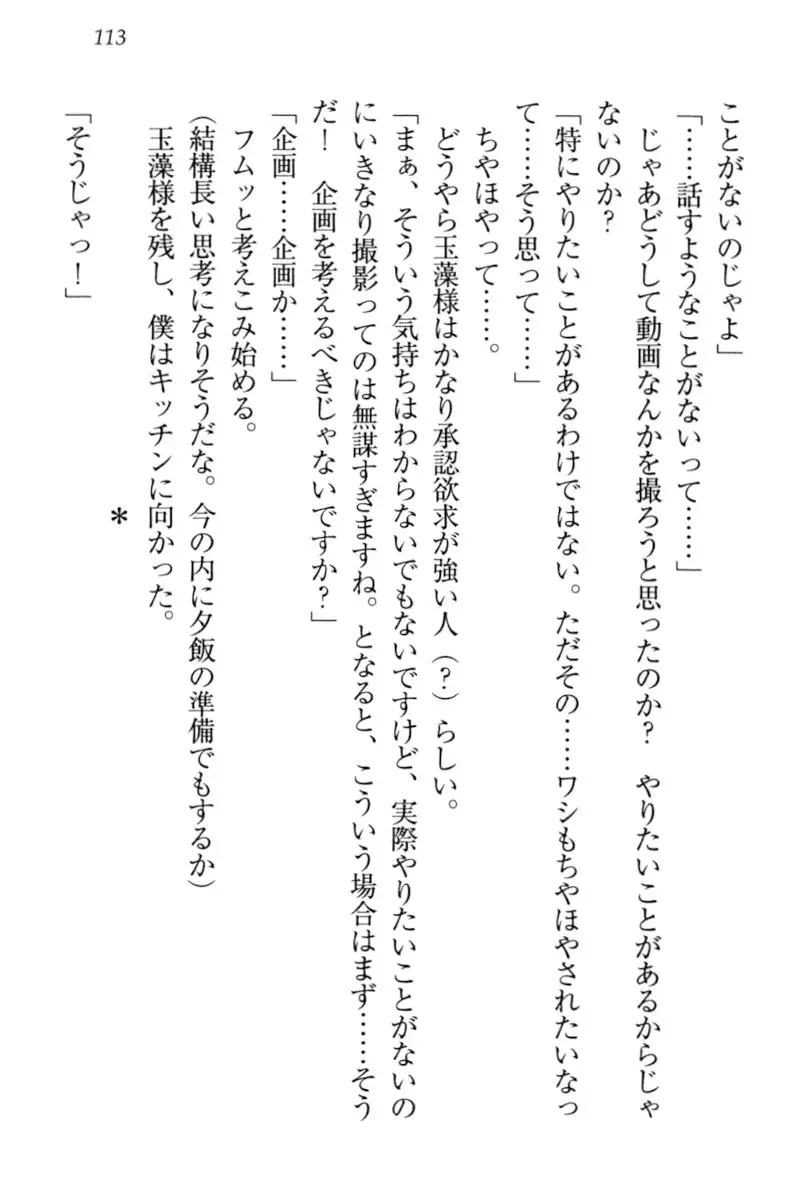 113
ことがないのじゃよ」
「……話すようなことがないって……」
　じゃあどうして動画なんかを撮ろうと思ったのか？　やりたいことがあるからじゃ
ないのか？
「特にやりたいことがあるわけではない。ただその……ワシもちやほやされたいなっ
て……そう思って……」
　ちやほやって……。
　どうやら玉藻様はかなり承認欲求が強い人（？）らしい。
「まぁ、そういう気持ちはわからないでもないですけど、実際やりたいことがないの
にいきなり撮影ってのは無謀すぎますね。となると、こういう場合はまず……そう
だ！　企画を考えるべきじゃないですか？」
「企画……企画か……」
　フムッと考えこみ始める。
（結構長い思考になりそうだな。今の内に夕飯の準備でもするか）
　玉藻様を残し、僕はキッチンに向かった。
＊
「そうじゃっ！」